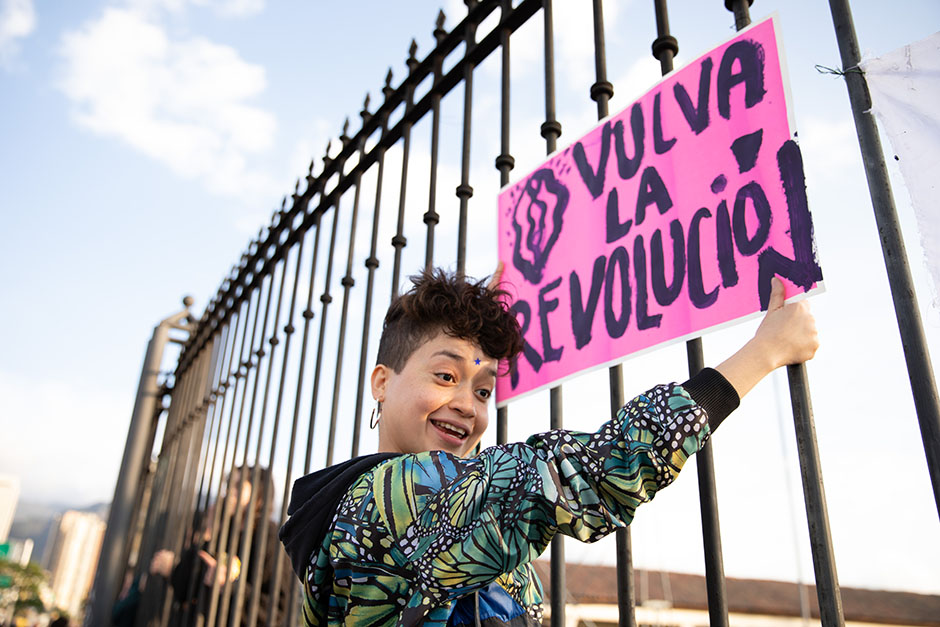 VULVA
LA
REVOLUCIÓN